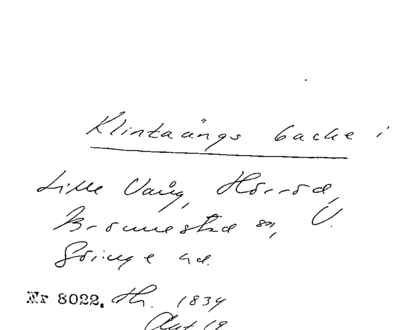 Klintaängs backe i
Lille Vång, Hörröd,
Brömestad sn, V.
Göinge hd.
Nr 8022. Th. 1834